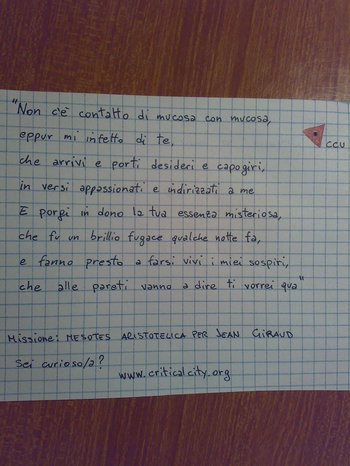 "Non c'è contatto di mucosa con mucosa,
eppur mi infetto di te,
CCU
che arrivi e porti desideri e capogiri,
in versi appassionati e indirizzati a me
E porgi in dono la tua essenza misteriosa,
che fu un brillio fugace qualche notte fa,
e fanno presto a farsi vivi i miei sospiri,
che alle pareti vanno a dire ti vorrei qua"
MISSIONE: MESOTES ARISTOTELICA PER JEAN GIRAUD
Sei curioso/a?
www.criticalcity.org